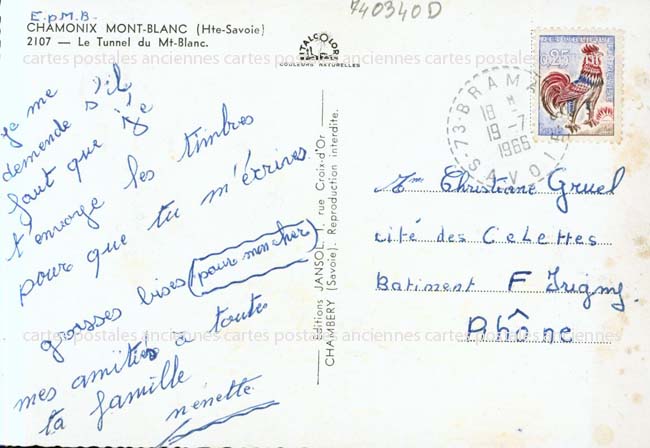 E.p M.B.
740340D
CHAMONIX MONT-BLANC (Hte-Savoie)
2107 — Le Tunnel du Mt-Blanc.
ITALCOLOR
COULEURS NATURELLES
0,25
73 BRAMANS
18 H
19-7
1966
SAVOIE
cartes postales anciennes cartes postales anciennes cartes postales anciennes
je me
demande s'il
faut que je
t'envoye les timbres
pour que tu m'écrives
grosses bises (pour mon cher)
mes amitiés a toute
ta famille
nénette
Éditions JANSOL, rue Croix-d'Or
CHAMBÉRY (Savoie). Reproduction interdite.
Mme Christiane Gruel
cité des Celettes
Batiment F Irigny
Rhône
cartes postales anciennes cartes postales anciennes cartes postales anciennes